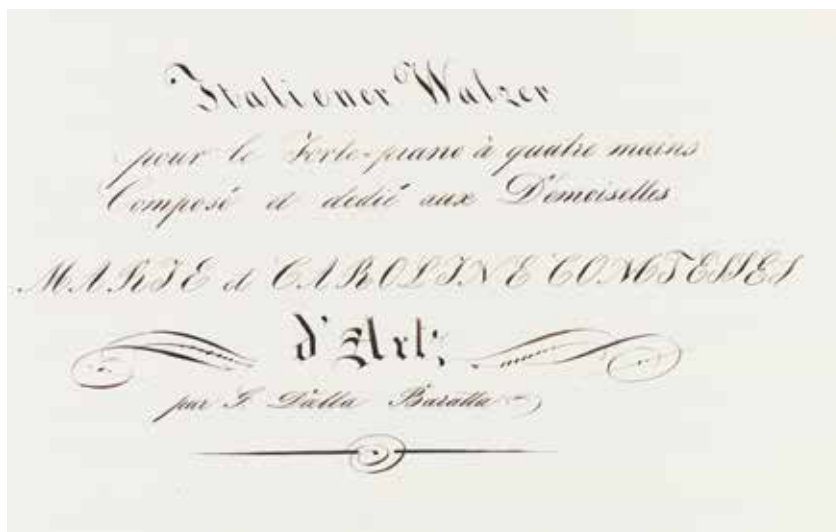 Italiener Walzer
pour le Forte-piano à quatre mains
Composé et dedié aux D'emoiselles
MARIE et CAROLINE COMTESSES
d'Art,
par G. Dalla Baratta